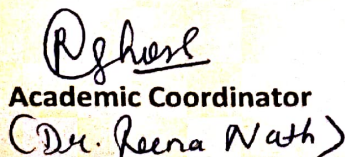 RGhose
Academic Coordinator
(Dr. Reena Nath)